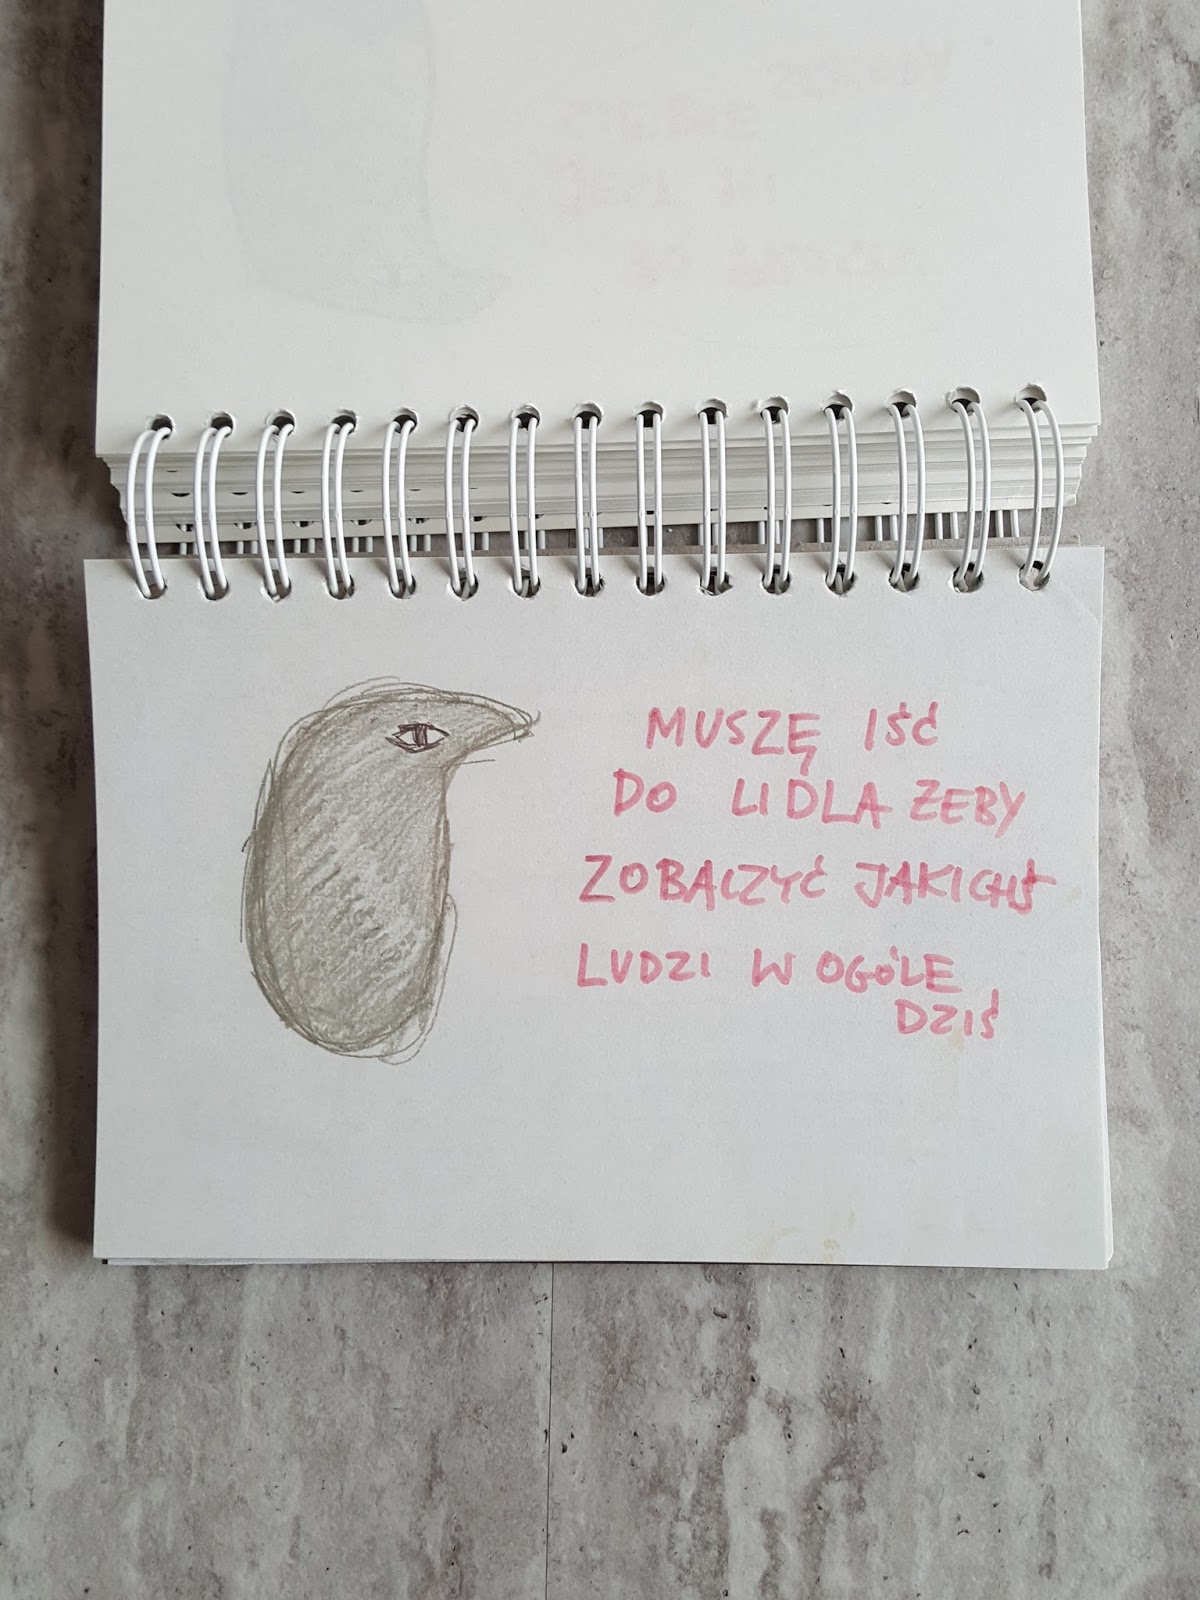 MUSZĘ IŚĆ
DO LIDLA ŻEBY
ZOBACZYĆ JAKICHŚ
LUDZI W OGÓLE
DZIŚ